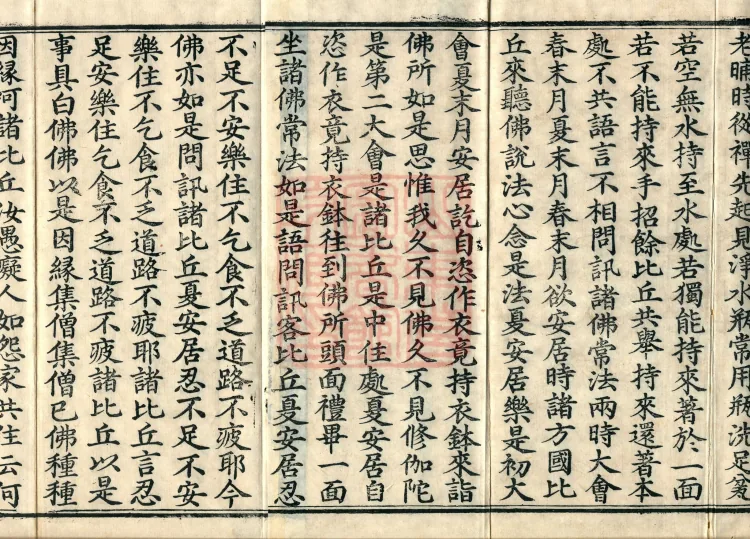 老晡時從禪先起見淨水瓶常用瓶洗足盆
若空無水持至水處若獨能持來著於一面
若不能持來手招餘比丘共舉持來還著本
處不共語言不相問訊諸佛常法兩時大會
春末月夏末月春末月欲安居時諸方國比
丘來聽佛說法心念是法夏安居樂是初大
會夏末月安居訖自恣作衣竟持衣鉢來詣
佛所如是思惟我久不見佛久不見修伽陀
是第二大會是諸比丘是中住處夏安居自
恣作衣竟持衣鉢往到佛所頭面禮畢一面
坐諸佛常法如是語問訊客比丘夏安居忍
不足不安樂住不乞食不乏道路不疲耶今
佛亦如是問訊諸比丘夏安居忍不足不安
樂住不乞食不乏道路不疲耶諸比丘言忍
足安樂住乞食不乏道路不疲諸比丘以是
事具白佛佛以是因緣集僧集僧已佛種種
因緣呵諸比丘汝愚癡人如怨家共住云何